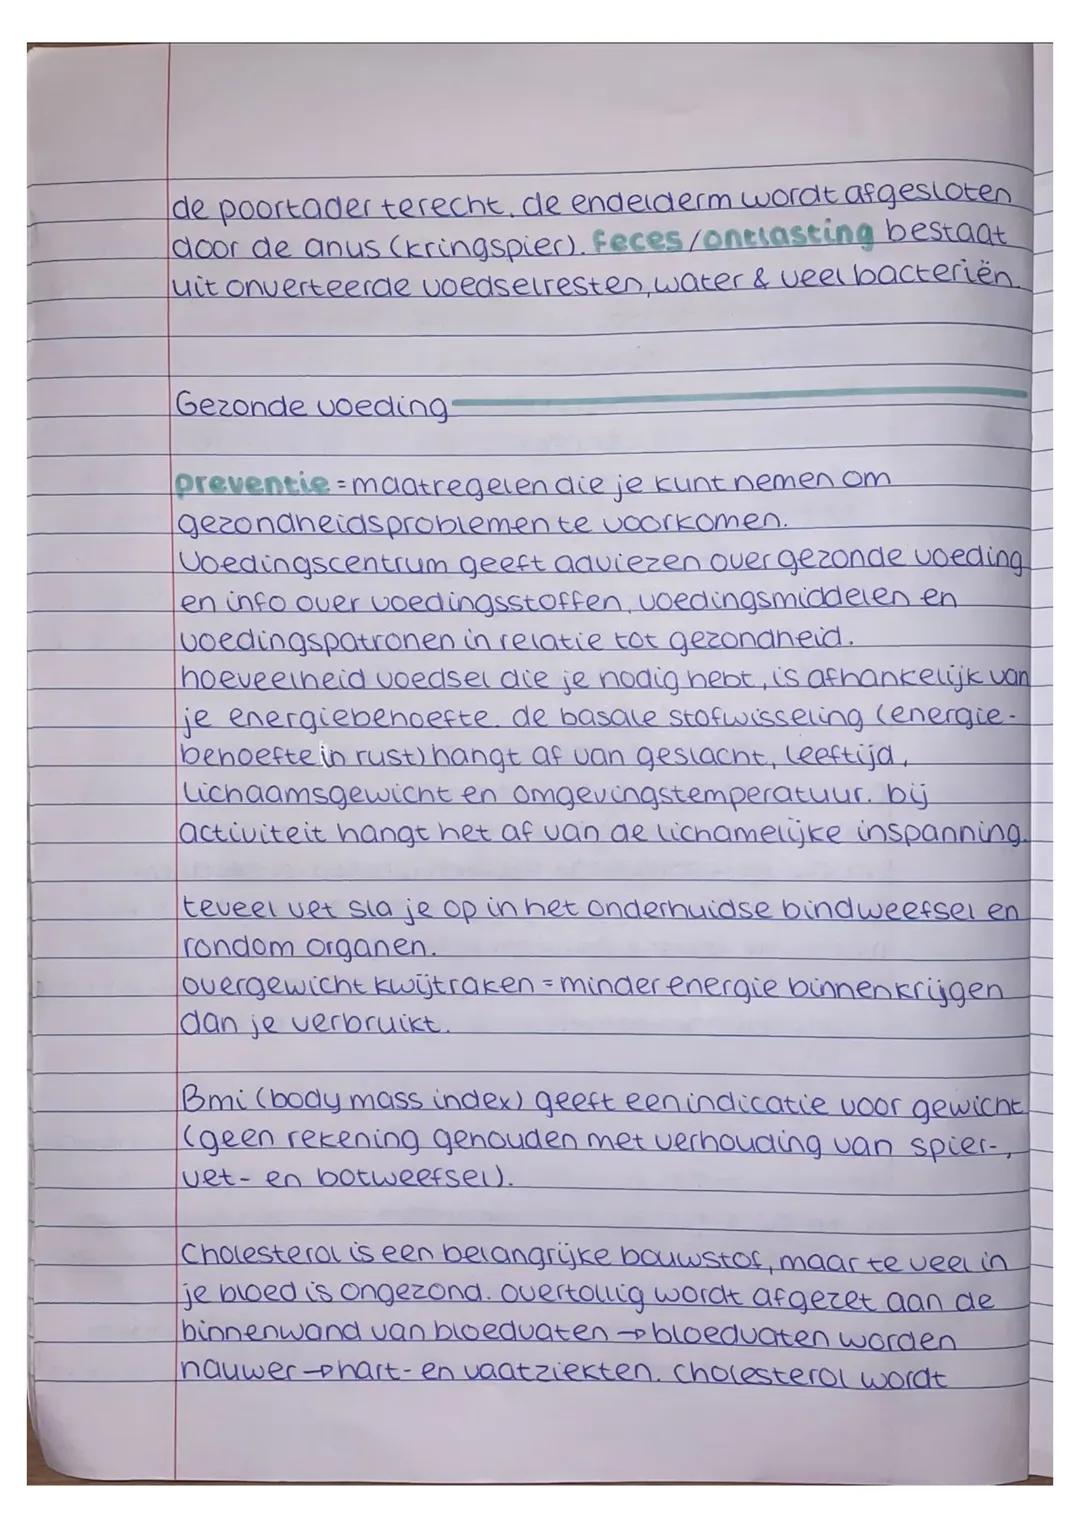 de poortader terecht. de endelderm wordt afgesloten
door de anus (kringspier). feces/ontlasting bestaat
uit onverteerde voedselresten, water & veel bacteriën.
Gezonde voeding
preventie = maatregelen die je kunt nemen om
gezondheidsproblemen te voorkomen.
Voedingscentrum geeft adviezen over gezonde voeding
en info over voedingsstoffen, voedingsmiddelen en
voedingspatronen in relatie tot gezondheid.
hoeveelheid voedsel die je nodig hebt, is afhankelijk van
je energiebehoefte. de basale stofwisseling (energie-
behoefte in rust) hangt af van geslacht, leeftijd,
lichaamsgewicht en omgevingstemperatuur. bij
activiteit hangt het af van de lichamelijke inspanning.
teveel vet sla je op in het onderhuidse bindweefsel en
rondom organen.
overgewicht kwijtraken = minder energie binnenkrijgen
dan je verbruikt.
Bmi (body mass index) geeft een indicatie voor gewicht
(geen rekening gehouden met verhouding van spier-,
vet- en botweefsel).
Cholesterol is een belangrijke bouwstof, maar te veel in
je bloed is ongezond. overtollig wordt afgezet aan de
binnenwand van bloedvaten → bloedvaten worden
nauwer → hart- en vaatziekten. cholesterol wordt